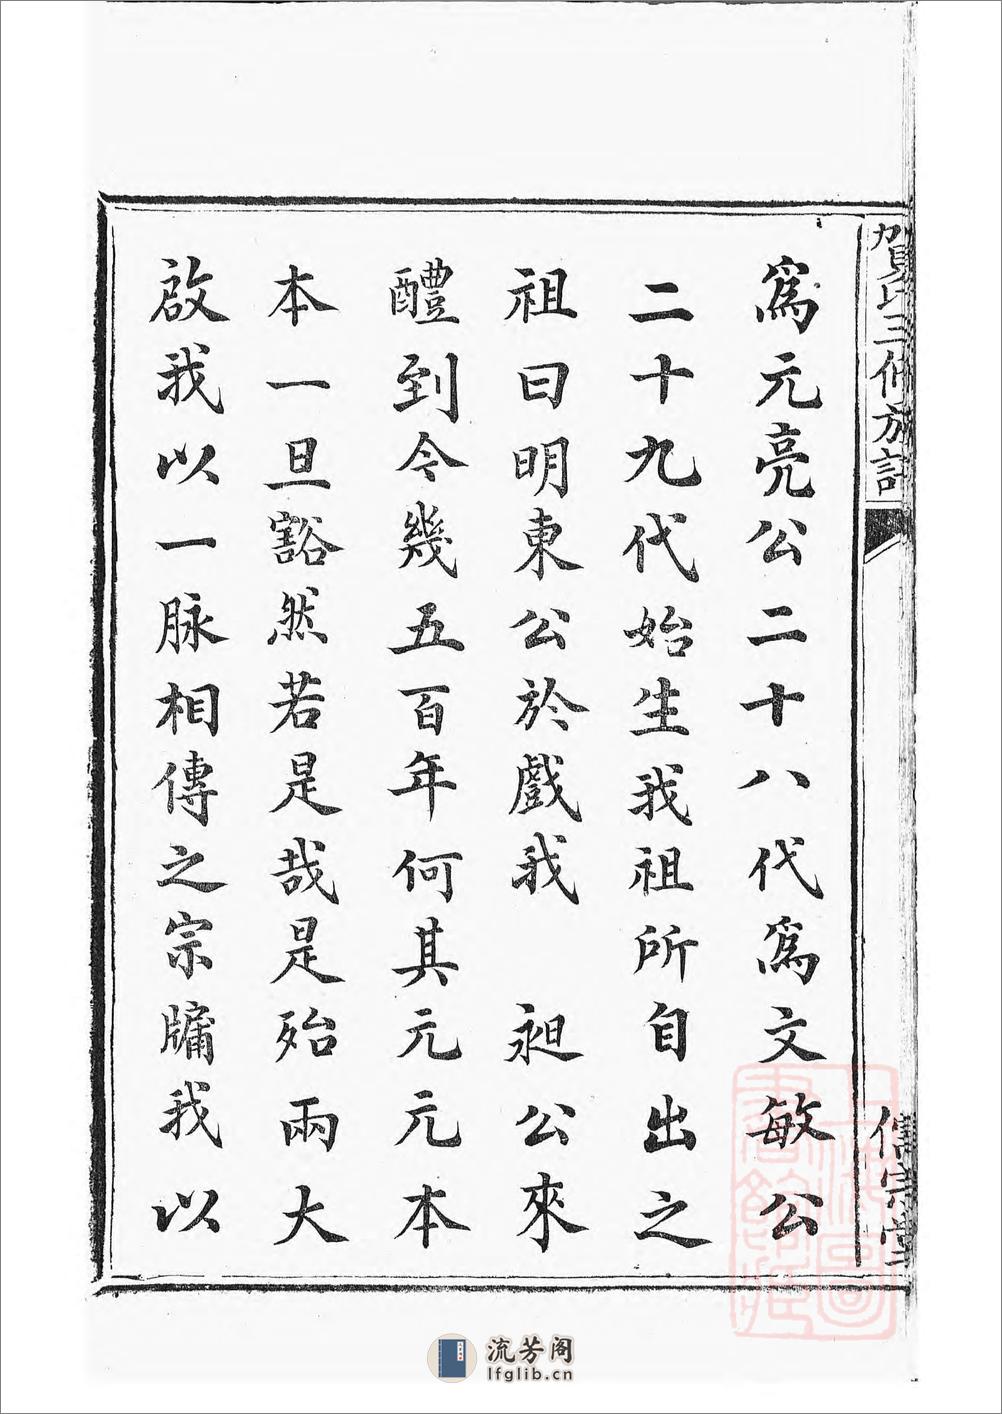 賀氏三修族譜
為元亮公二十八代為文敏公
二十九代始生我祖所自出之
祖曰明東公於戲我 昶公來
醴到今幾五百年何其元元本
本一旦豁然若是哉是殆兩大
啟我以一脉相傳之宗牖我以
宗堂
上海圖書館藏
流芳阁
lfglib.cn